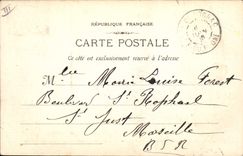 III
RÉPUBLIQUE FRANÇAISE
CARTE POSTALE
Ce côté est exclusivement réservé à l'adresse
M. lle Marie Louise Forest
Boulevard St Raphael
St Just Marseille
B D R